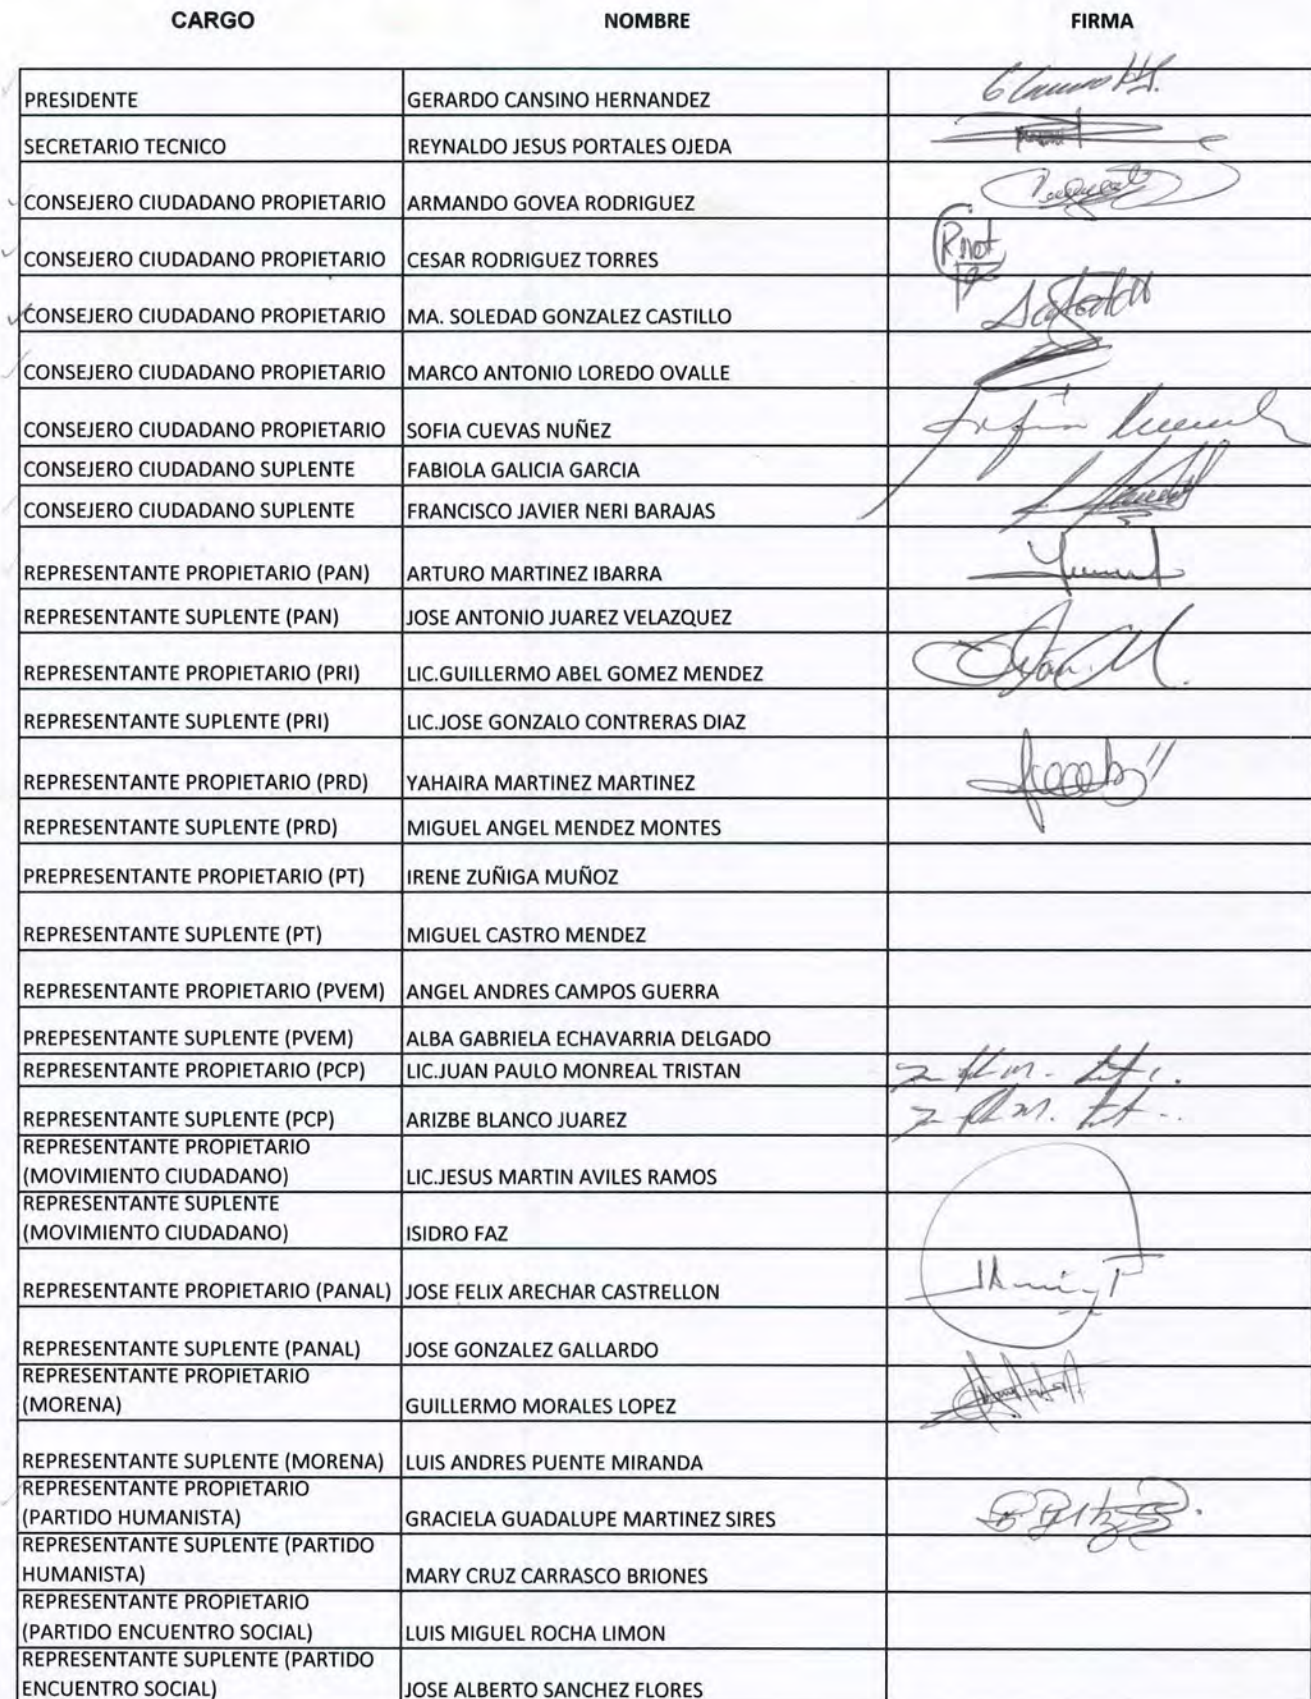 CARGO NOMBRE FIRMA
PRESIDENTE GERARDO CANSINO HERNANDEZ
SECRETARIO TECNICO REYNALDO JESUS PORTALES OJEDA
CONSEJERO CIUDADANO PROPIETARIO ARMANDO GOVEA RODRIGUEZ
CONSEJERO CIUDADANO PROPIETARIO CESAR RODRIGUEZ TORRES
CONSEJERO CIUDADANO PROPIETARIO MA. SOLEDAD GONZALEZ CASTILLO
CONSEJERO CIUDADANO PROPIETARIO MARCO ANTONIO LOREDO OVALLE
CONSEJERO CIUDADANO PROPIETARIO SOFIA CUEVAS NUÑEZ
CONSEJERO CIUDADANO SUPLENTE FABIOLA GALICIA GARCIA
CONSEJERO CIUDADANO SUPLENTE FRANCISCO JAVIER NERI BARAJAS
REPRESENTANTE PROPIETARIO (PAN) ARTURO MARTINEZ IBARRA
REPRESENTANTE SUPLENTE (PAN) JOSE ANTONIO JUAREZ VELAZQUEZ
REPRESENTANTE PROPIETARIO (PRI) LIC.GUILLERMO ABEL GOMEZ MENDEZ
REPRESENTANTE SUPLENTE (PRI) LIC.JOSE GONZALO CONTRERAS DIAZ
REPRESENTANTE PROPIETARIO (PRD) YAHAIRA MARTINEZ MARTINEZ
REPRESENTANTE SUPLENTE (PRD) MIGUEL ANGEL MENDEZ MONTES
PREPRESENTANTE PROPIETARIO (PT) IRENE ZUÑIGA MUÑOZ
REPRESENTANTE SUPLENTE (PT) MIGUEL CASTRO MENDEZ
REPRESENTANTE PROPIETARIO (PVEM) ANGEL ANDRES CAMPOS GUERRA
PREPESENTANTE SUPLENTE (PVEM) ALBA GABRIELA ECHAVARRIA DELGADO
REPRESENTANTE PROPIETARIO (PCP) LIC.JUAN PAULO MONREAL TRISTAN
REPRESENTANTE SUPLENTE (PCP) ARIZBE BLANCO JUAREZ
REPRESENTANTE PROPIETARIO
(MOVIMIENTO CIUDADANO) LIC.JESUS MARTIN AVILES RAMOS
REPRESENTANTE SUPLENTE
(MOVIMIENTO CIUDADANO) ISIDRO FAZ
REPRESENTANTE PROPIETARIO (PANAL) JOSE FELIX ARECHAR CASTRELLON
REPRESENTANTE SUPLENTE (PANAL) JOSE GONZALEZ GALLARDO
REPRESENTANTE PROPIETARIO
(MORENA) GUILLERMO MORALES LOPEZ
REPRESENTANTE SUPLENTE (MORENA) LUIS ANDRES PUENTE MIRANDA
REPRESENTANTE PROPIETARIO
(PARTIDO HUMANISTA) GRACIELA GUADALUPE MARTINEZ SIRES
REPRESENTANTE SUPLENTE (PARTIDO
HUMANISTA) MARY CRUZ CARRASCO BRIONES
REPRESENTANTE PROPIETARIO
(PARTIDO ENCUENTRO SOCIAL) LUIS MIGUEL ROCHA LIMON
REPRESENTANTE SUPLENTE (PARTIDO
ENCUENTRO SOCIAL) JOSE ALBERTO SANCHEZ FLORES